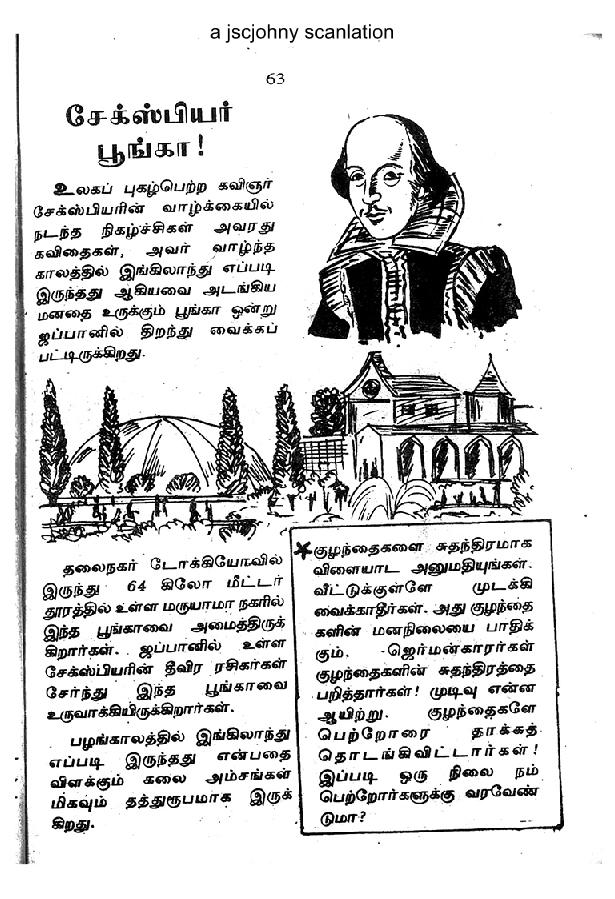 a jscjohny scanlation
63
சேக்ஸ்பியர்
பூங்கா!
உலகப் புகழ்பெற்ற கவிஞர்
சேக்ஸ்பியரின் வாழ்க்கையில்
நடந்த நிகழ்ச்சிகள் அவரது
கவிதைகள், அவர் வாழ்ந்த
காலத்தில் இங்கிலாந்து எப்படி
இருந்தது ஆகியவை அடங்கிய
மனதை உருக்கும் பூங்கா ஒன்று
ஜப்பானில் திறந்து வைக்கப்
பட்டிருக்கிறது.
தலைநகர் டோக்கியோவில்
இருந்து 64 கிலோ மீட்டர்
தூரத்தில் உள்ள மருயாமா நகரில்
இந்த பூங்காவை அமைத்திருக்
கிறார்கள். ஜப்பானில் உள்ள
சேக்ஸ்பியரின் தீவிர ரசிகர்கள்
சேர்ந்து இந்த பூங்காவை
உருவாக்கியிருக்கிறார்கள்.
பழங்காலத்தில் இங்கிலாந்து
எப்படி இருந்தது என்பதை
விளக்கும் கலை அம்சங்கள்
மிகவும் தத்ரூபமாக இருக்
கிறது.
★குழந்தைகளை சுதந்திரமாக
விளையாட அனுமதியுங்கள்.
வீட்டுக்குள்ளே முடக்கி
வைக்காதீர்கள். அது குழந்தை
களின் மனநிலையை பாதிக்
கும். -ஜெர்மன்காரர்கள்
குழந்தைகளின் சுதந்திரத்தை
பறித்தார்கள்! முடிவு என்ன
ஆயிற்று. குழந்தைகளே
பெற்றோரை தாக்கத்
தொடங்கிவிட்டார்கள்!
இப்படி ஒரு நிலை நம்
பெற்றோர்களுக்கு வரவேண்
டுமா?